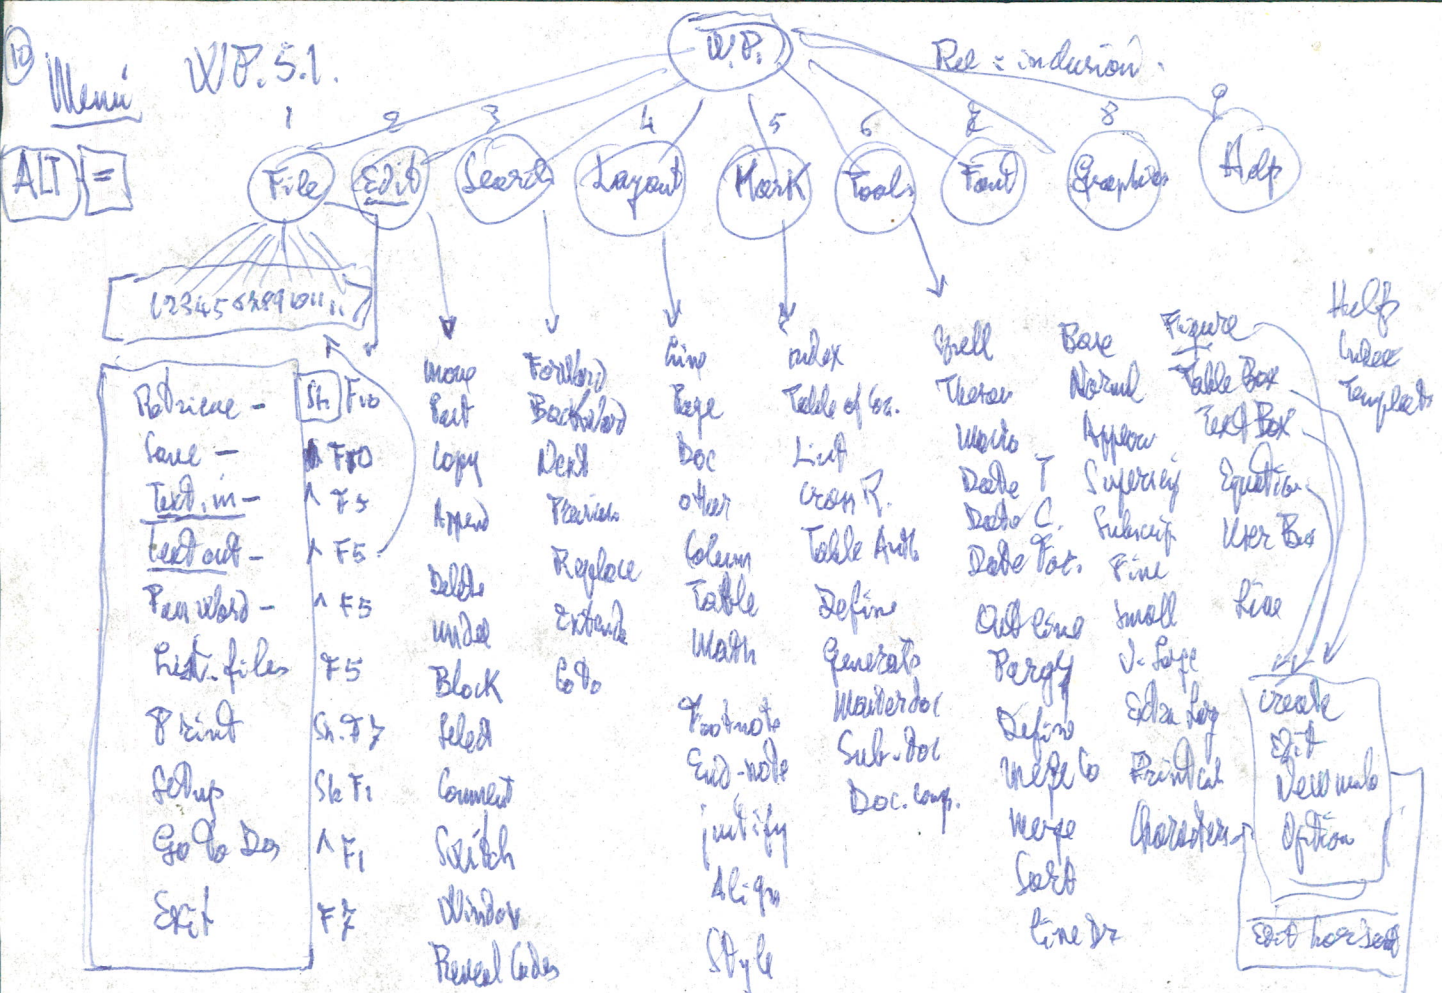 10
Menú
WP. 5.1.
W.P.
Rel = inclusión.
1 2 3 4 5 6 7 8 9
ALT =
File Edit Search Layout Mark Tools Font Graphics Help
1 2 3 4 5 6 7 8 9 10 11
Retrieve - Sh F10
Save - F10
Text.in - ^ F5
Text out - ^ F5
Password - ^ F5
List. files F5
Print Sh. F7
Setup Sh F1
Go to Dos ^ F1
Exit F7
Move
Copy
Append
Delete
Undel
Block
Select
Comment
Switch
Window
Reveal Codes
Forward
Backward
Next
Previous
Replace
Extende
Goto
Line
Page
Doc
other
Colum
Table
Math
Footnote
End-note
justify
Align
Style
index
Table of Co.
List
Cross R.
Table Auth
Define
Generate
Masterdoc
Sub-doc
Doc. comp.
Spell
Macro
Date T
Date C.
Date Fot.
Outline
Define
Merge Co
Merge
Sort
line Dr
Base
Normal
Appear
Superscrip
Subscrip
Fine
Small
V. Large
Extra Larg
Print col
Characters
Figure
Table Box
Text Box
Equation
User Box
Line
Help
Index
Template
create
Edit
New numb
Option